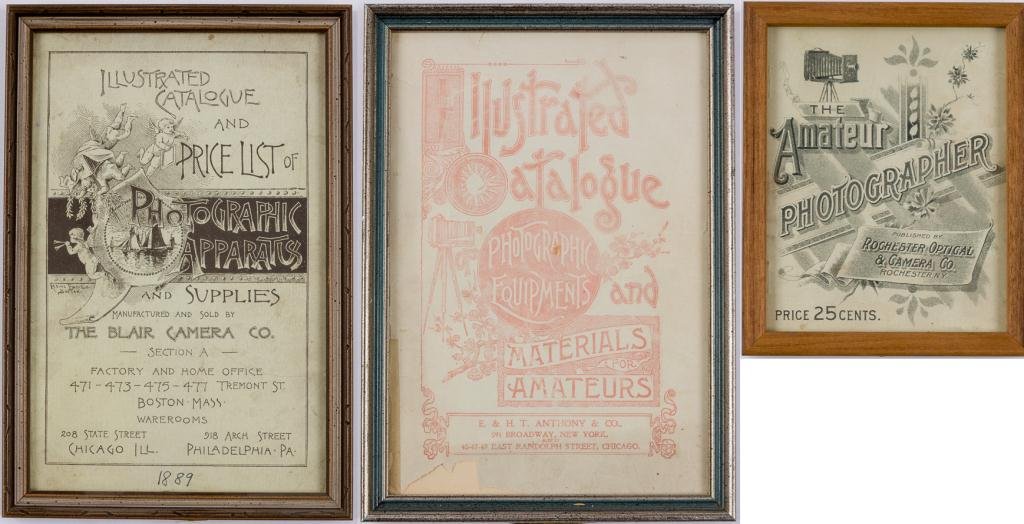 ILLUSTRATED
CATALOGUE
AND
PRICE LIST OF
PHOTOGRAPHIC
APPARATUS
AND SUPPLIES
MANUFACTURED AND SOLD BY
THE BLAIR CAMERA CO.
— SECTION A —
FACTORY AND HOME OFFICE
471-473-475-477 TREMONT ST.
BOSTON-MASS.
WAREROOMS
208 STATE STREET
CHICAGO ILL.
918 ARCH STREET
PHILADELPHIA-PA.
1889
Illustrated
Catalogue
PHOTOGRAPHIC
EQUIPMENTS
and
MATERIALS
FOR
AMATEURS
E. & H. T. ANTHONY & CO.
591 BROADWAY, NEW YORK,
45-47-49 EAST RANDOLPH STREET, CHICAGO.
THE
Amateur
PHOTOGRAPHER
PUBLISHED BY
ROCHESTER OPTICAL
& CAMERA CO.
ROCHESTER, N.Y.
PRICE 25 CENTS.